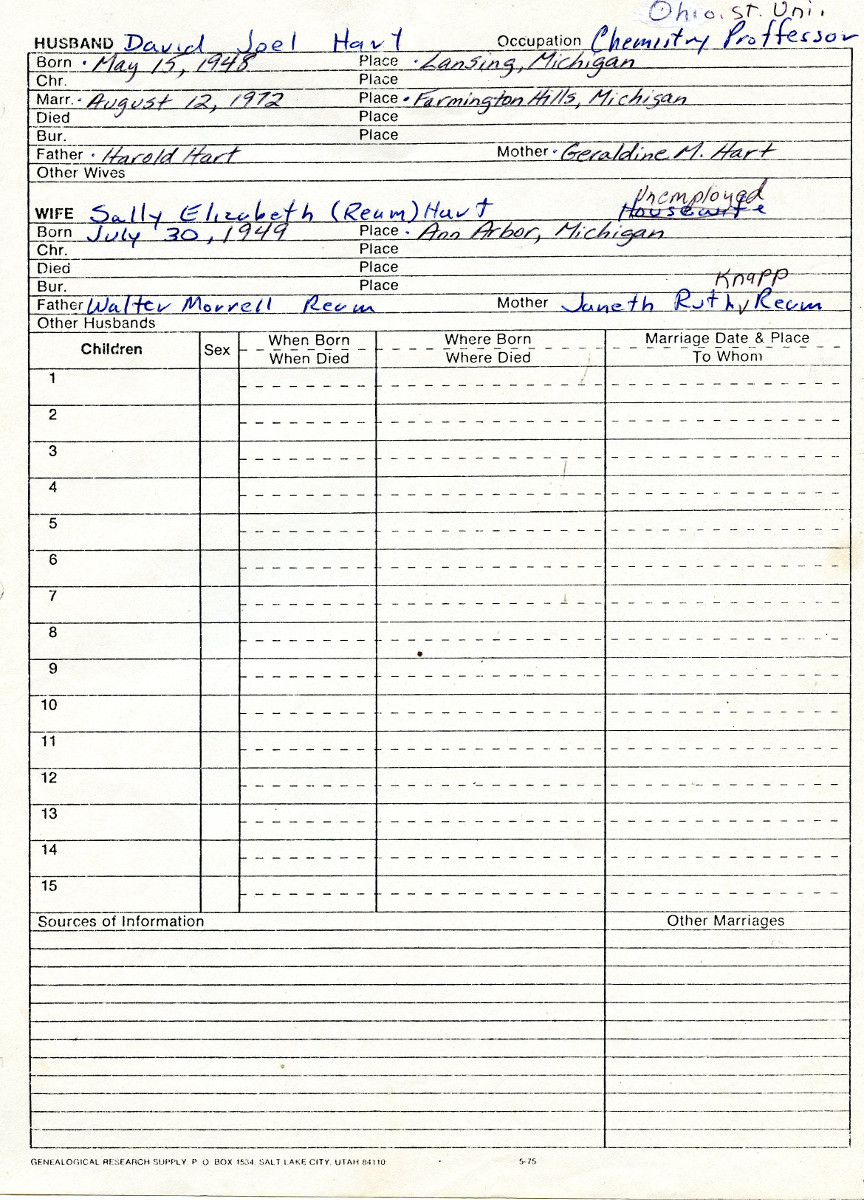 Ohio. St. Uni.
HUSBAND David Joel Hart Occupation Chemistry Proffessor
Born · May 15, 1948 Place · Lansing, Michigan
Chr. Place
Marr. · August 12, 1972 Place · Farmington Hills, Michigan
Died Place
Bur. Place
Father · Harold Hart Mother · Geraldine M. Hart
Other Wives
Unemployed
WIFE Sally Elizabeth (Reum) Hart Housewife
Born July 30, 1949 Place · Ann Arbor, Michigan
Chr. Place
Died Place
Bur. Place
Knapp
Father Walter Morrell Reum Mother Janeth Ruth Reum
Other Husbands
Children Sex When Born Where Born Marriage Date & Place
When Died Where Died To Whom
1
2
3
4
5
6
7
8
9
10
11
12
13
14
15
Sources of Information Other Marriages
GENEALOGICAL RESEARCH SUPPLY, P. O. BOX 1534, SALT LAKE CITY, UTAH 84110 5-75